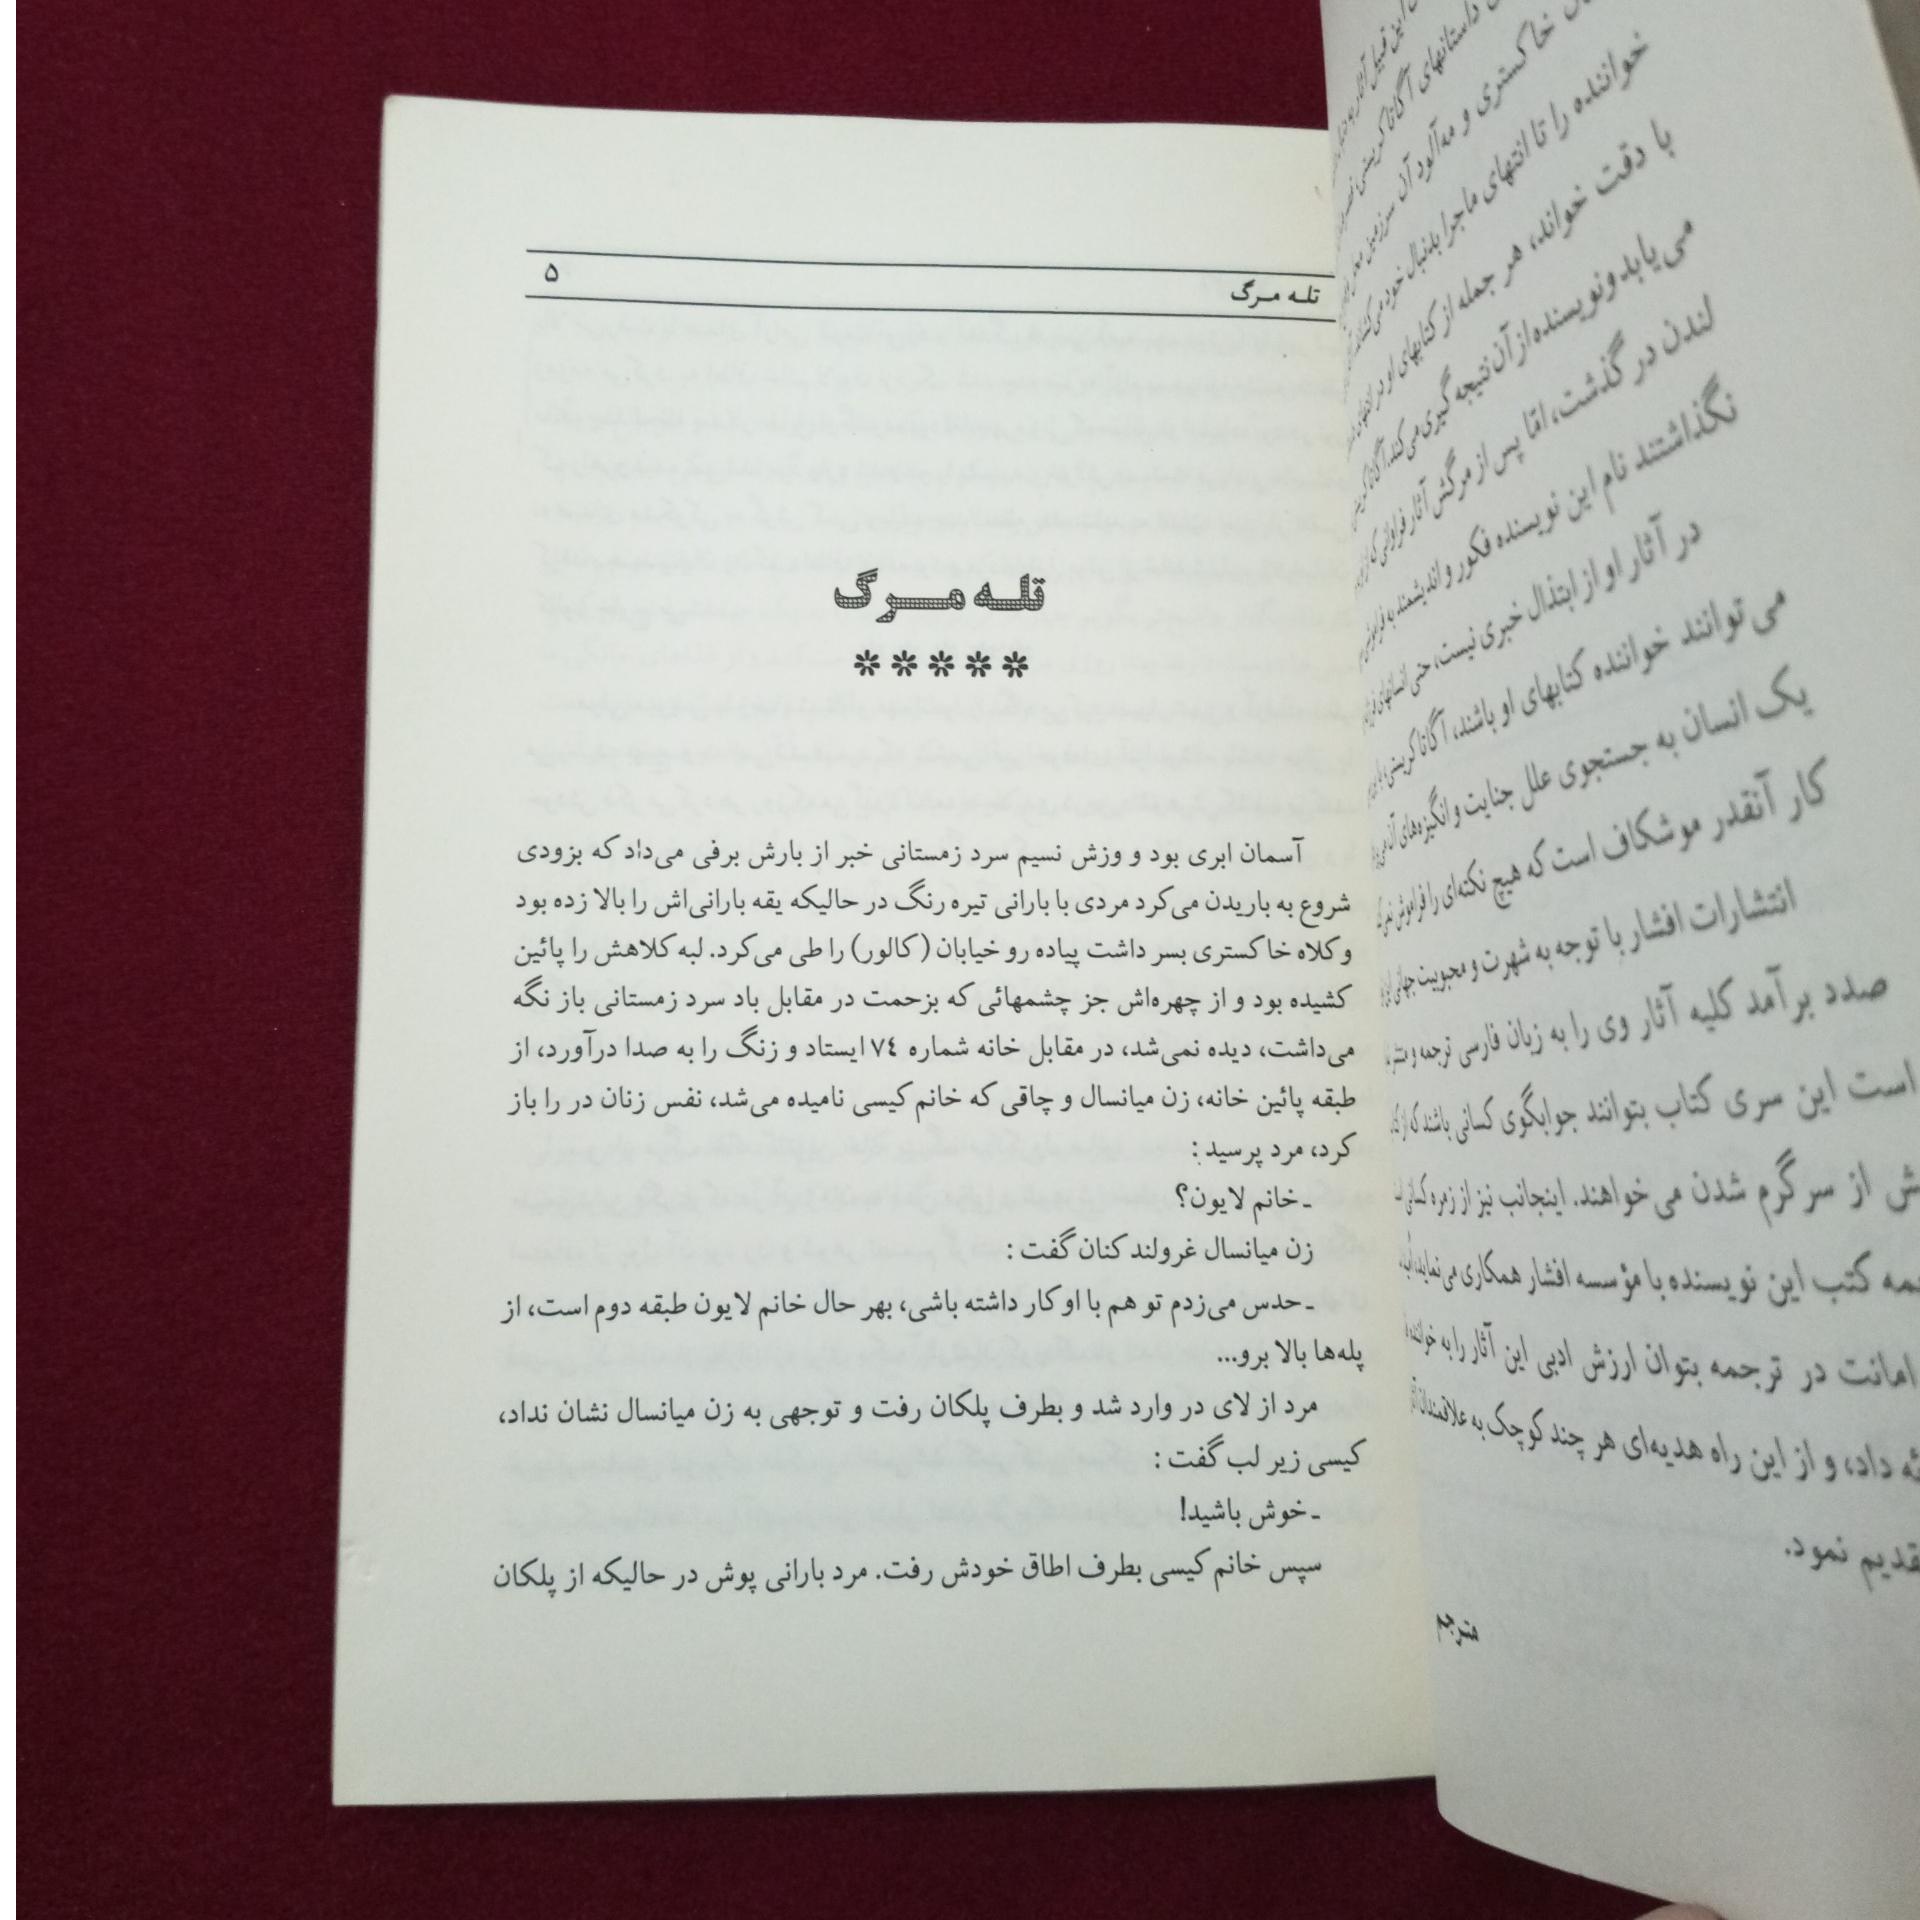 داستانهای آگاتا کریستی
خاکستری و مه‌آلود آن سرزمین
خواننده را تا انتهای ماجرا بدنبال خود می‌کشاند
با دقت خواند، هر جمله از کتابهای او در
می‌یابد و نویسنده از آن نتیجه گیری می‌کند. آگاتا کریستی
لندن در گذشت، امّا پس از مرگش آثار فراوانی که از
نگذاشتند نام این نویسنده فکور و اندیشمند به
در آثار او از ابتذال خبری نیست، حتی انسانهای
می‌توانند خواننده کتابهای او باشند، آگاتا کریستی
یک انسان به جستجوی علل جنایت و انگیزه‌های آن
کار آنقدر موشکاف است که هیچ نکته‌ای را فراموش
انتشارات افشار با توجه به شهرت و محبوبیت جهانی
صدد برآمد کلیه آثار وی را به زبان فارسی ترجمه و
است این سری کتاب بتوانند جوابگوی کسانی باشند که از
از سرگرم شدن می‌خواهند. اینجانب نیز از زمره کسانی
کتب این نویسنده با مؤسسه افشار همکاری می‌نماید،
امانت در ترجمه بتوان ارزش ادبی این آثار را به
داد، و از این راه هدیه‌ای هر چند کوچک به علاقمندان
نمود.
مترجم
تله مرگ ۵
تله مرگ
*****
آسمان ابری بود و وزش نسیم سرد زمستانی خبر از بارش برفی می‌داد که بزودی
شروع به باریدن می‌کرد مردی با بارانی تیره رنگ در حالیکه یقه بارانی‌اش را بالا زده بود
و کلاه خاکستری بسر داشت پیاده رو خیابان (کالور) را طی می‌کرد. لبه کلاهش را پائین
کشیده بود و از چهره‌اش جز چشمهائی که بزحمت در مقابل باد سرد زمستانی باز نگه
می‌داشت، دیده نمی‌شد، در مقابل خانه شماره ۷۴ ایستاد و زنگ را به صدا درآورد، از
طبقه پائین خانه، زن میانسال و چاقی که خانم کیسی نامیده می‌شد، نفس زنان در را باز
کرد، مرد پرسید:
ـ خانم لایون؟
زن میانسال غرولند کنان گفت:
ـ حدس می‌زدم تو هم با او کار داشته باشی، بهر حال خانم لایون طبقه دوم است، از
پله‌ها بالا برو...
مرد از لای در وارد شد و بطرف پلکان رفت و توجهی به زن میانسال نشان نداد،
کیسی زیر لب گفت:
ـ خوش باشید!
سپس خانم کیسی بطرف اطاق خودش رفت. مرد بارانی پوش در حالیکه از پلکان